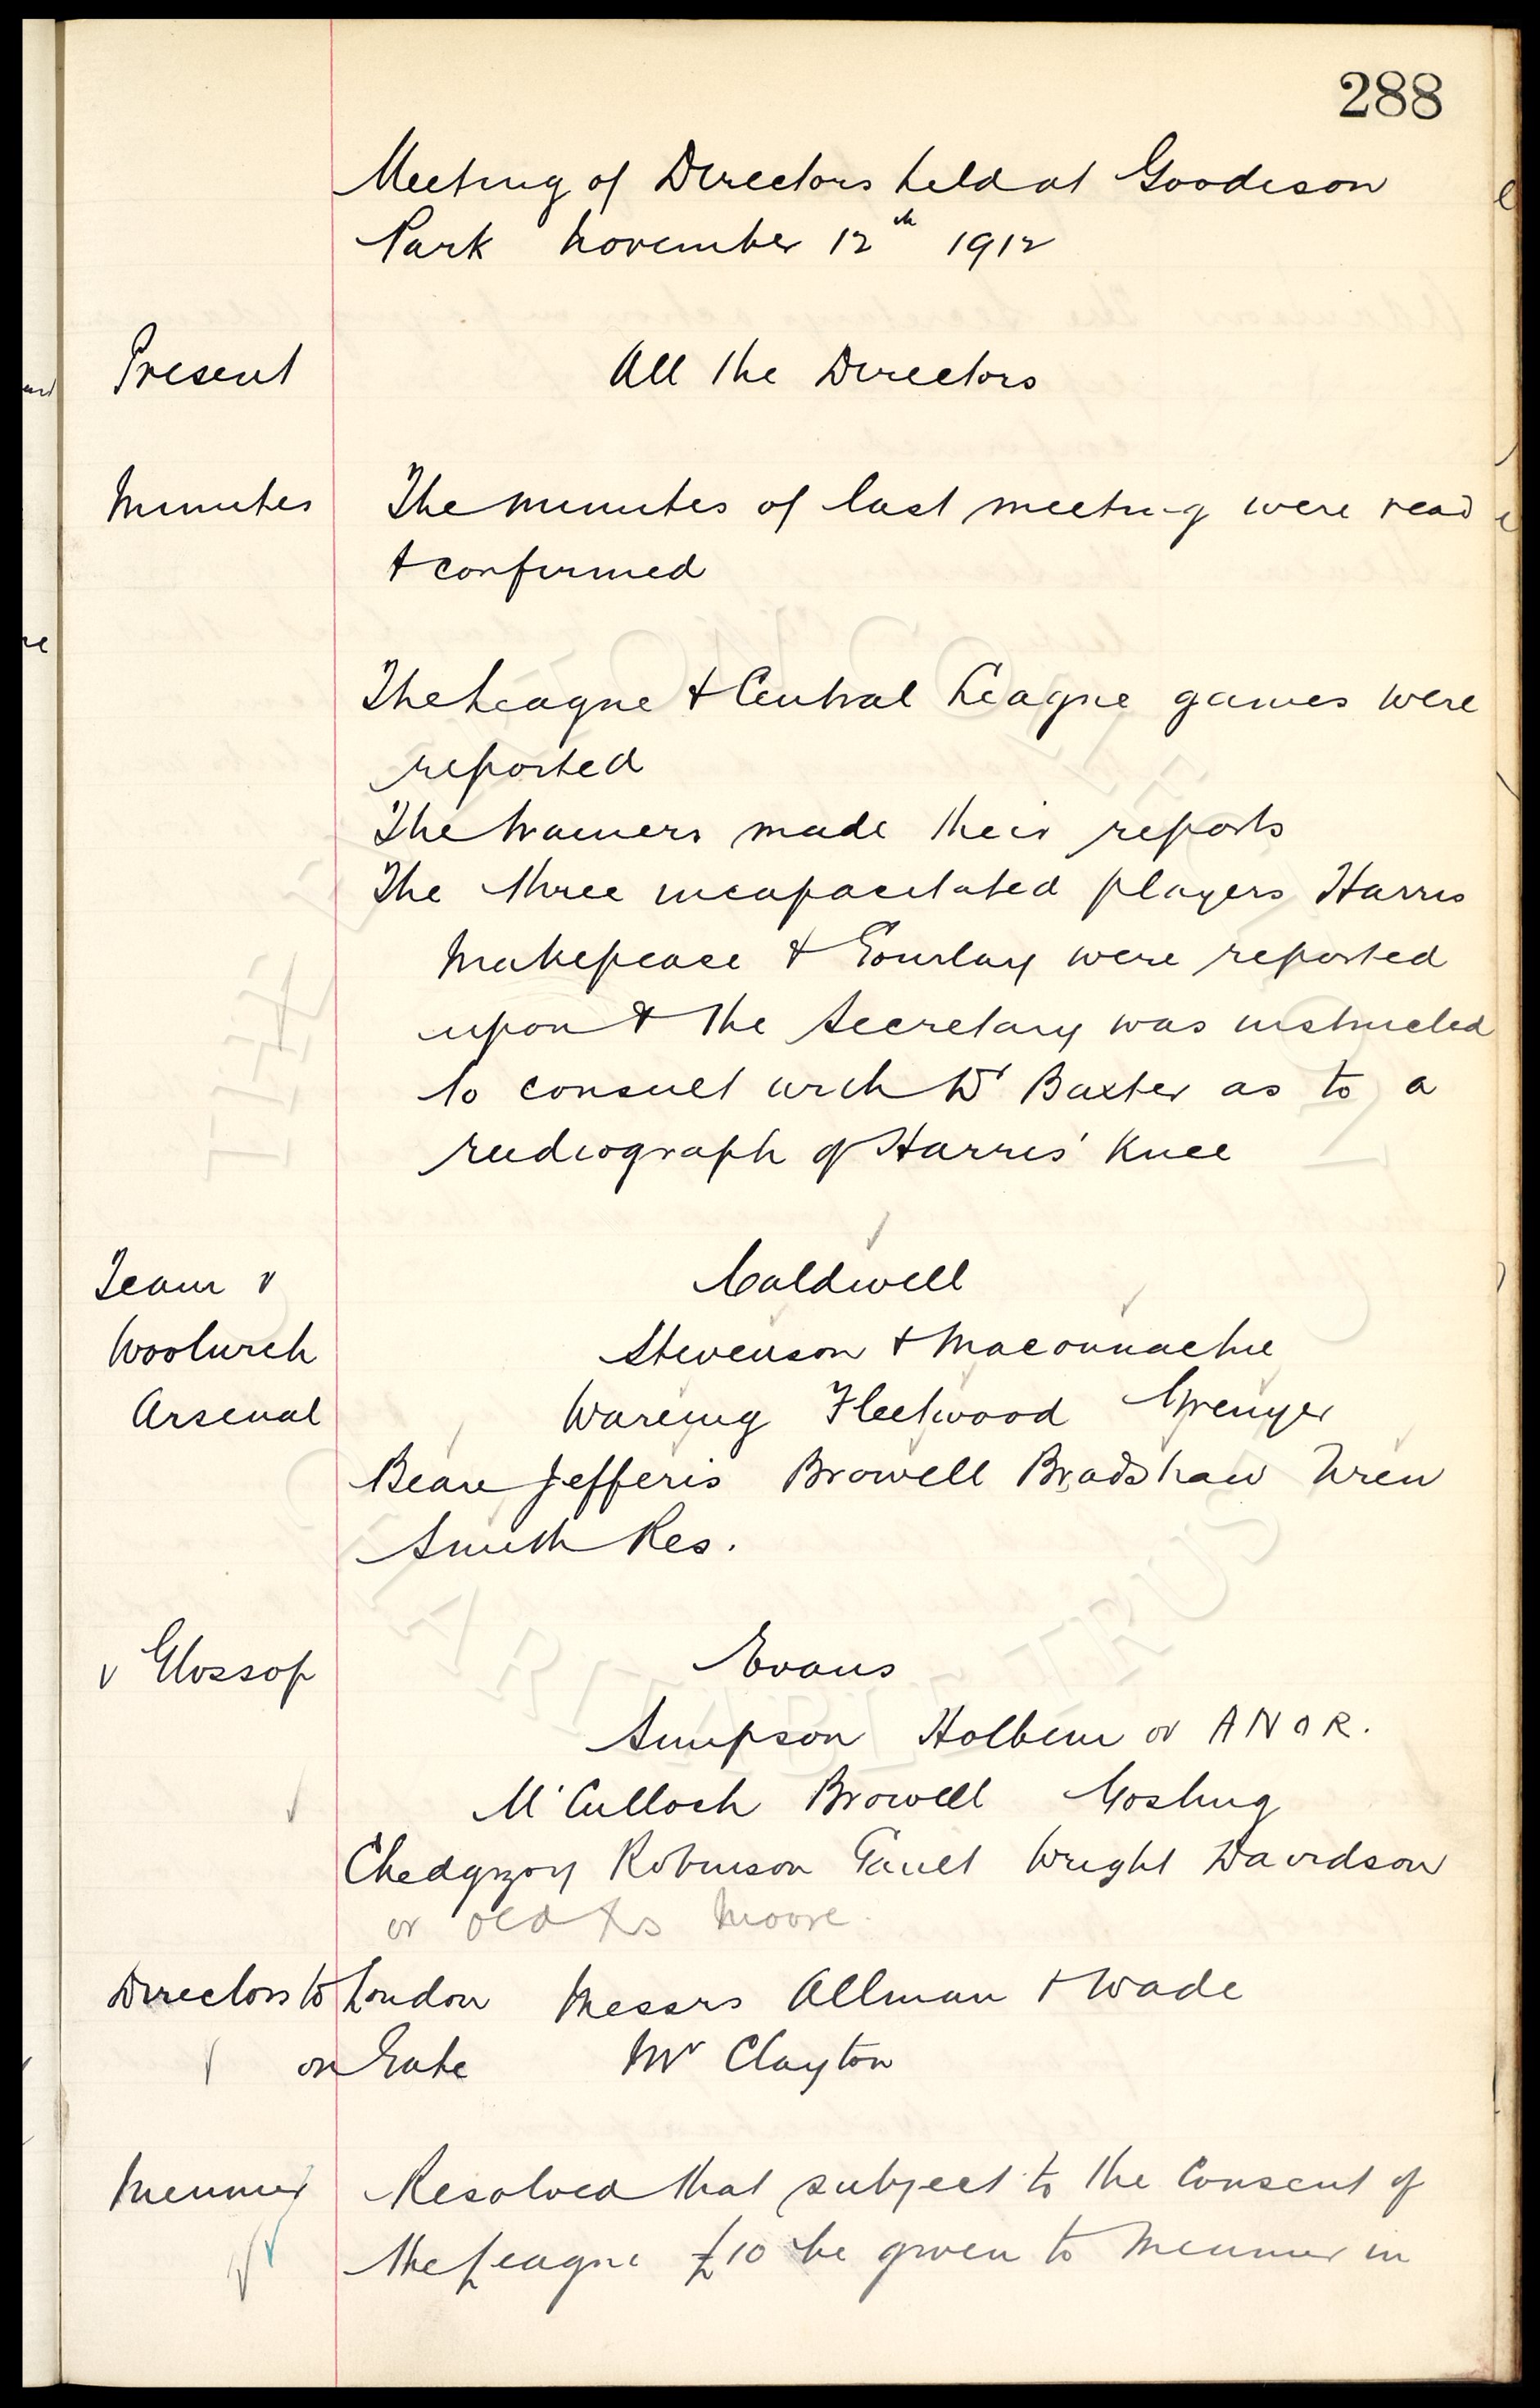 288
Meeting of Directors held at Goodison
Park November 12th 1912
Present All the Directors
Minutes The minutes of last meeting were read
& confirmed
The League & Central League games were
reported
The trainers made their reports
The three incapacitated players Harris
Makepeace & Gourlay were reported
upon & the Secretary was instructed
to consult with Dr Baxter as to a
radiograph of Harris' Knee
Team v Caldwell
Woolwich Stevenson & Maconnachie
Arsenal Wareing Fleetwood Grenyer
Beare Jefferis Browell Bradshaw Uren
Smith Res.
v Glossop Evans
Simpson Holbem or A N O R.
McCulloch Browell Gosling
Chedgzoy Robinson Gault Wright Davidson
or old Xs Moore.
Directors to London Messrs Allman & Wade
on Gate Mr Clayton
Meunier Resolved that subject to the Consent of
the League £10 be given to Meunier in